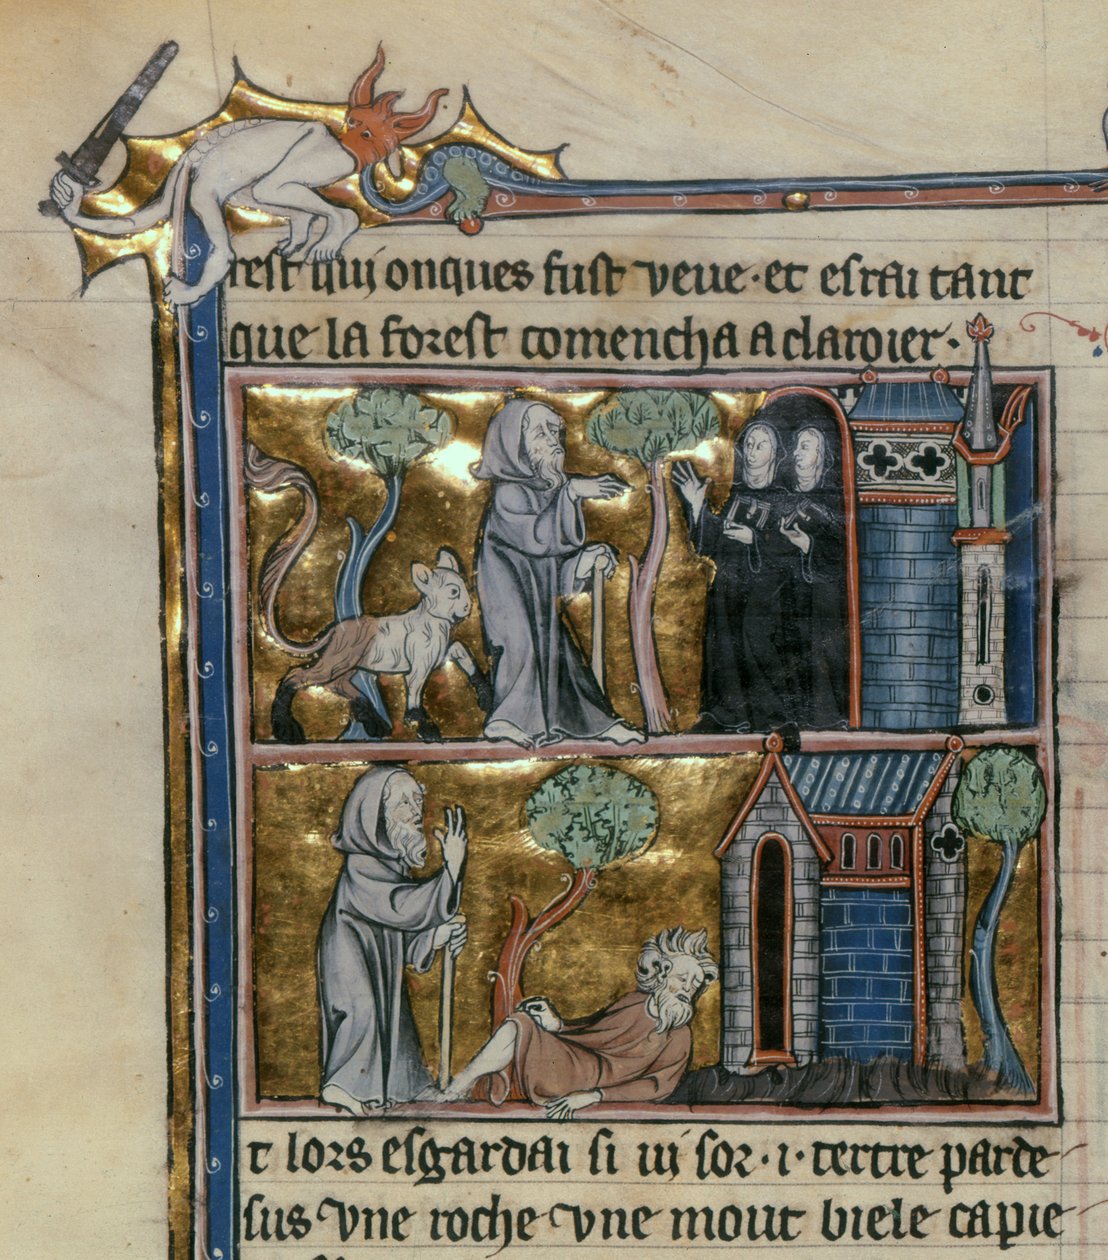 rest qui onques fust veue · et esrai tant
que la forest comencha a claroier ·
t lors esgardai si vi sor · i · tertre parde
sus vne roche vne mout biele capie